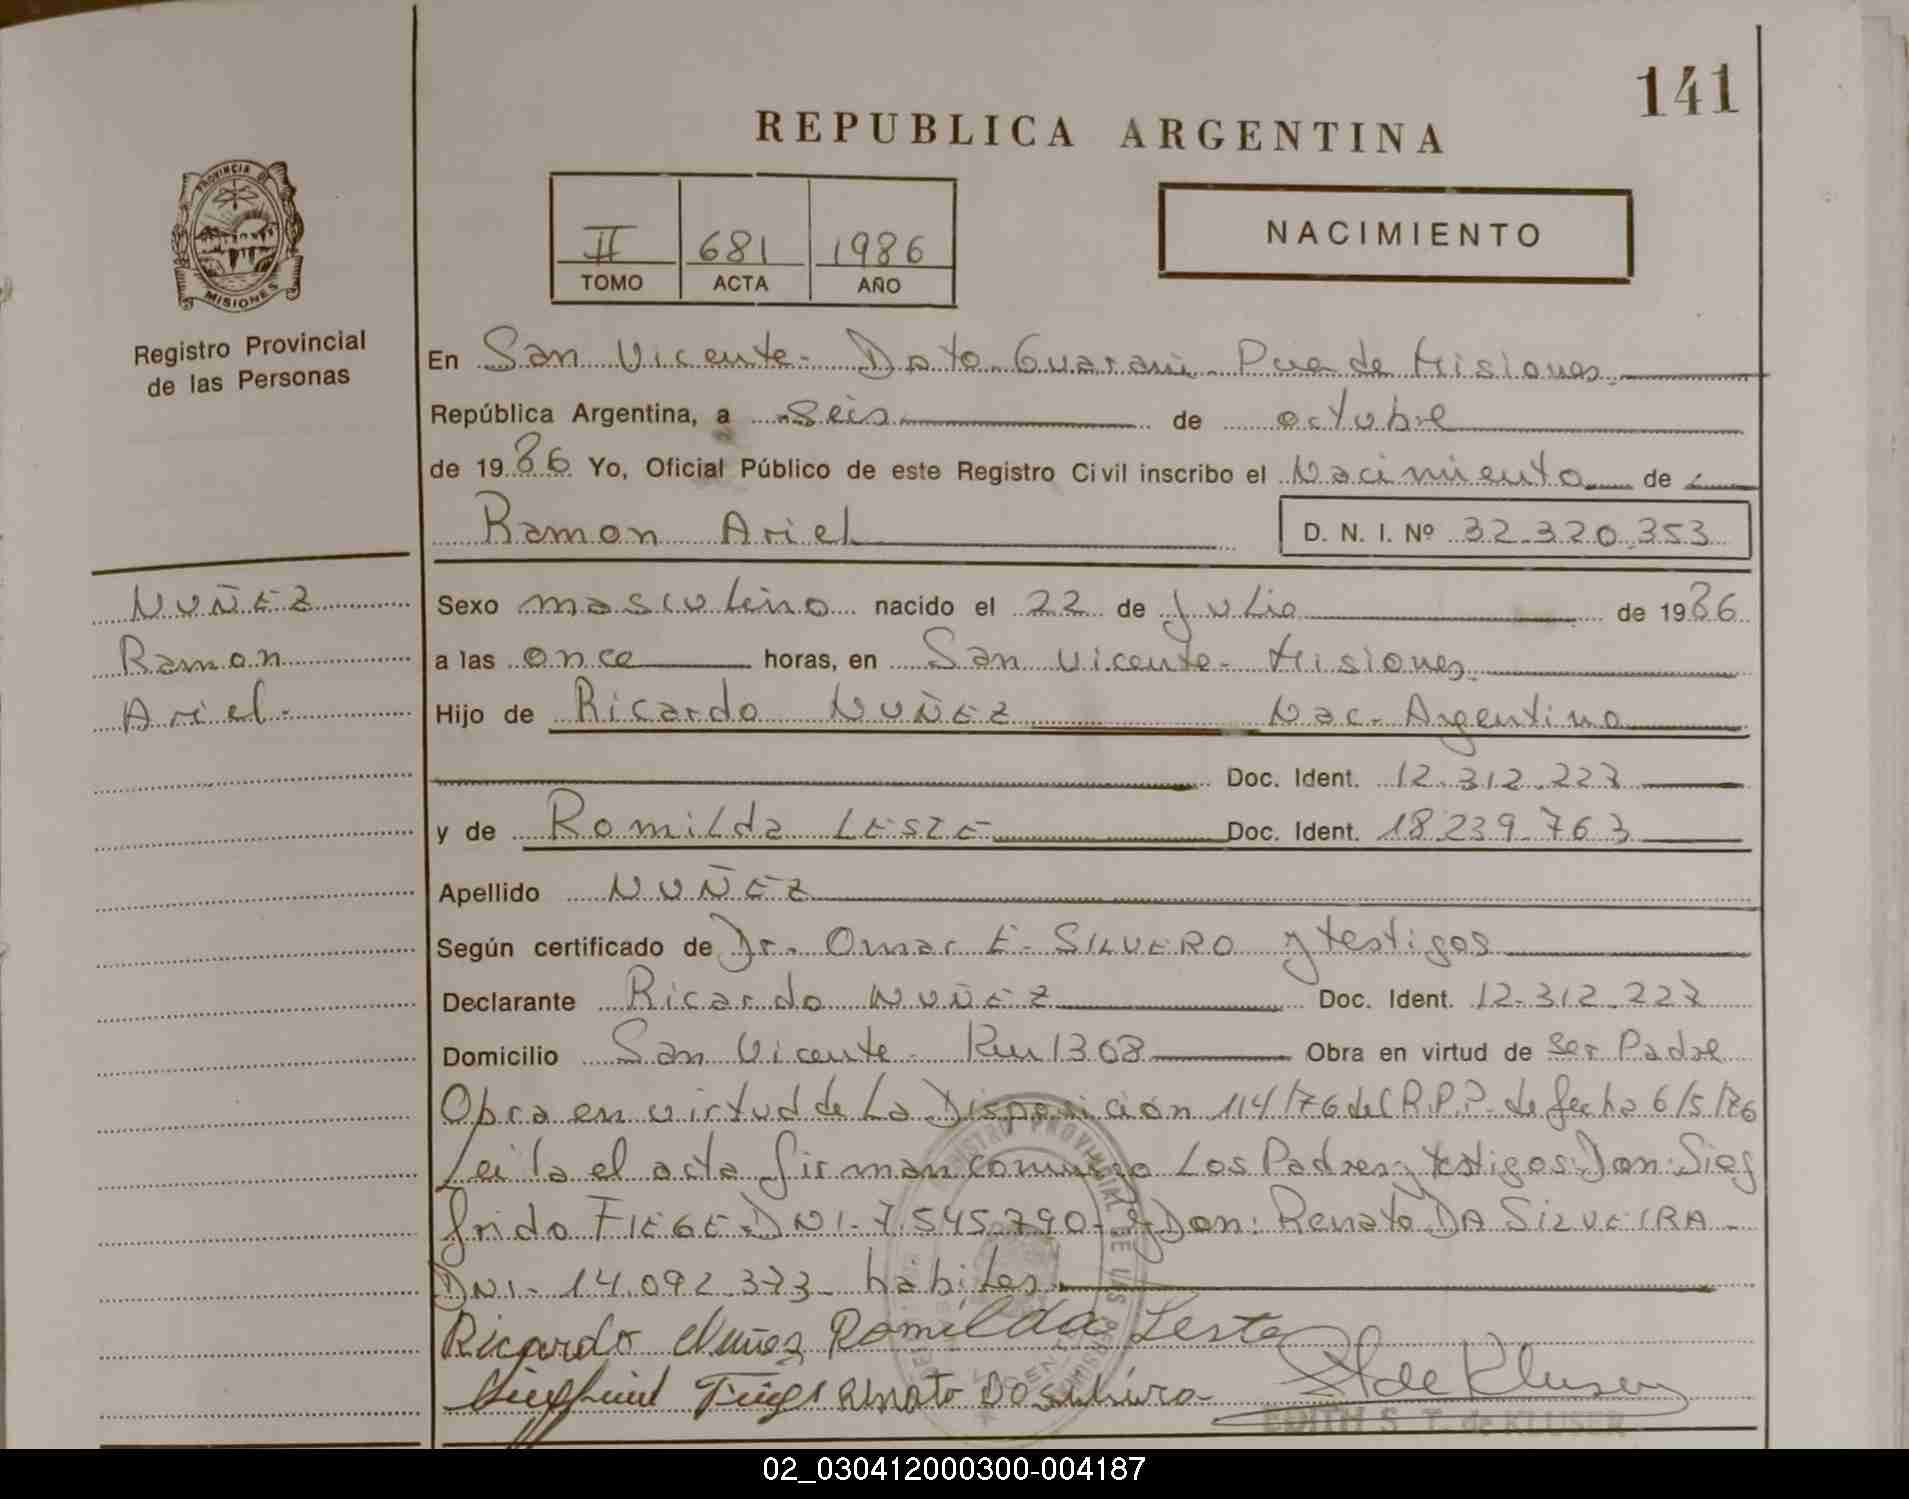 141
REPUBLICA ARGENTINA
PROVINCIA DE
MISIONES
Registro Provincial
de las Personas
II 681 1986
TOMO ACTA AÑO
NACIMIENTO
En San Vicente - Dpto. Guarani - Pcia de Misiones.
República Argentina, a seis de octubre
de 1986 Yo, Oficial Público de este Registro Civil inscribo el Nacimiento de
Ramon Ariel D. N. I. Nº 32.320.353
NUÑEZ
Ramon
Ariel.
Sexo masculino nacido el 22 de Julio de 1986
a las once horas, en San Vicente - Misiones.
Hijo de Ricardo NUÑEZ Nac. Argentino
Doc. Ident. 12.312.227
y de Romilda LESTE Doc. Ident. 18.239.763
Apellido NUÑEZ
Según certificado de Dr. Omar E. SILVERO y testigos
Declarante Ricardo NUÑEZ Doc. Ident. 12.312.227
Domicilio San Vicente - Km 1308 Obra en virtud de Ser Padre
Obra en virtud de La Disposición 114/76 del R.P.P. de fecha 6/5/76
Leida el acta firman conmigo Los Padres y testigos: Don: Sieg
frido FIEGE - DNI - 7.545.790 - y Don: Renato DA SILVEIRA -
DNI - 14.092.373 - hábiles.
Ricardo Nuñez Romilda Leste
EDITH S. T. de KLUSER
02_030412000300-004187